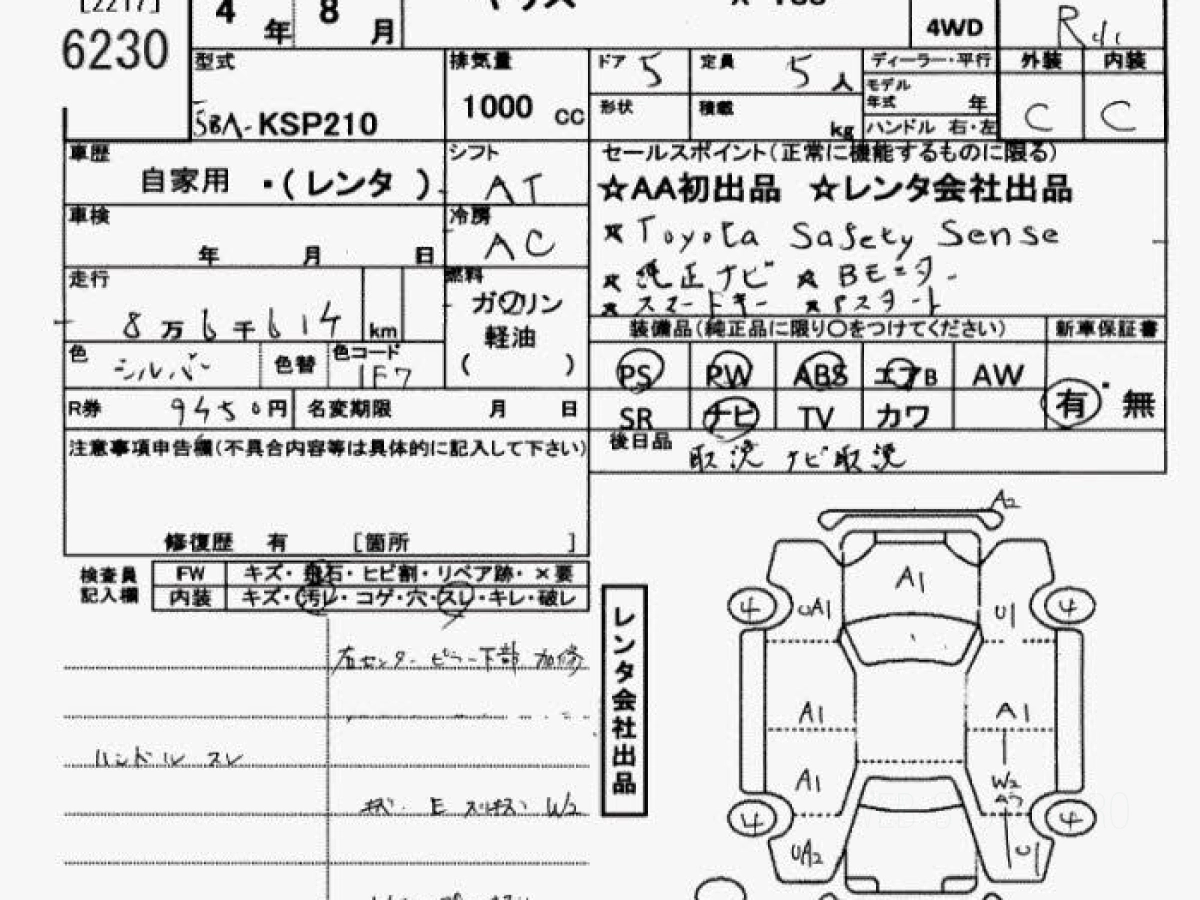 [2217]
6230
4 年 8 月
4WD
型式
5BA-KSP210
排気量
1000 cc
ドア 5
定員 5 人
形状
積載 kg
ディーラー・平行
モデル年式 年
ハンドル 右・左
外装 内装
C C
車歴
自家用 ・(レンタ)
シフト
AT
セールスポイント(正常に機能するものに限る)
☆AA初出品 ☆レンタ会社出品
★Toyota Safety Sense
★純正ナビ ★BEニター
★スマートキー ★Pスタート
車検
年 月 日
冷房
AC
走行
8万6千614 km
燃料
ガソリン
軽油
( )
色 シルバー
色替
色コード 1F7
装備品(純正品に限り○をつけてください)
新車保証書
PS PW ABS エアB AW
SR ナビ TV カワ
有・無
R券 9450円
名変期限 月 日
後日品
取説 ナビ取説
注意事項申告欄(不具合内容等は具体的に記入して下さい)
修復歴 有 [箇所 ]
検査員記入欄
FW キズ・飛石・ヒビ割・リペア跡・×要
内装 キズ・汚レ・コゲ・穴・スレ・キレ・破レ
右センターピラー下部 加修
ハンドル スレ
W2
レンタ会社出品
A2
A1
4 UA1 U1 4
A1 A1
A1 W2
4 4
UA2